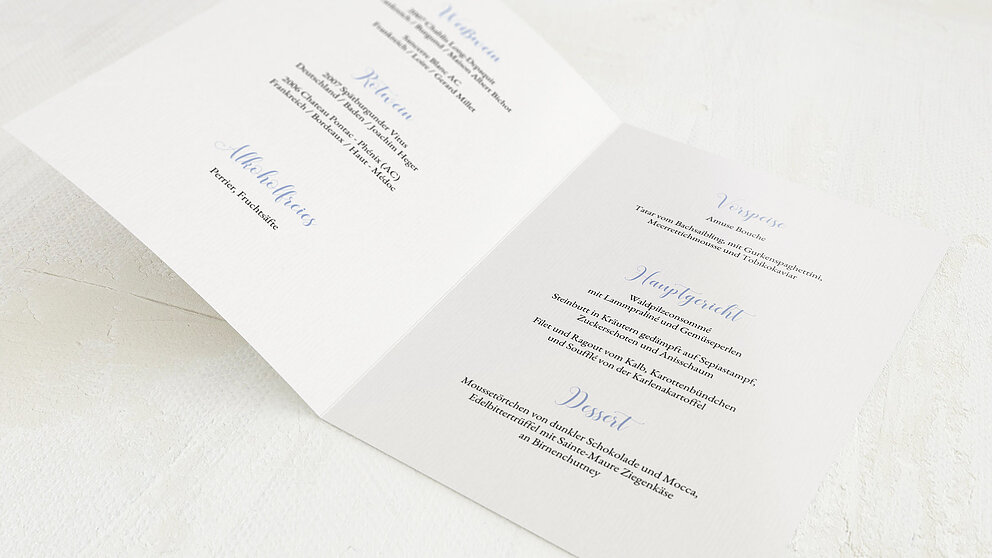 Weißwein
2007 Chablis Long-Depaquit
Frankreich / Burgund / Maison Albert Bichot
Sancerre Blanc AC
Frankreich / Loire / Gerard Millet
Rotwein
2007 Spätburgunder Vitus
Deutschland / Baden / Joachim Heger
2006 Chateau Pontac - Phénix (AC)
Frankreich / Bordeaux / Haut - Médoc
Alkoholfreies
Perrier, Fruchtsäfte
Vorspeise
Amuse Bouche
Tatar vom Bachsaibling, mit Gurkenspaghettini,
Meerrettichmousse und Tobikokaviar
Hauptgericht
Waldpilzconsommé
mit Lammpraliné und Gemüseperlen
Steinbutt in Kräutern gedämpft auf Sepiastampf,
Zuckerschoten und Anisschaum
Filet und Ragout vom Kalb, Karottenbündchen
und Soufflé von der Karlenakartoffel
Dessert
Moussetörtchen von dunkler Schokolade und Mocca,
Edelbittertrüffel mit Sainte-Maure Ziegenkäse
an Birnenchutney